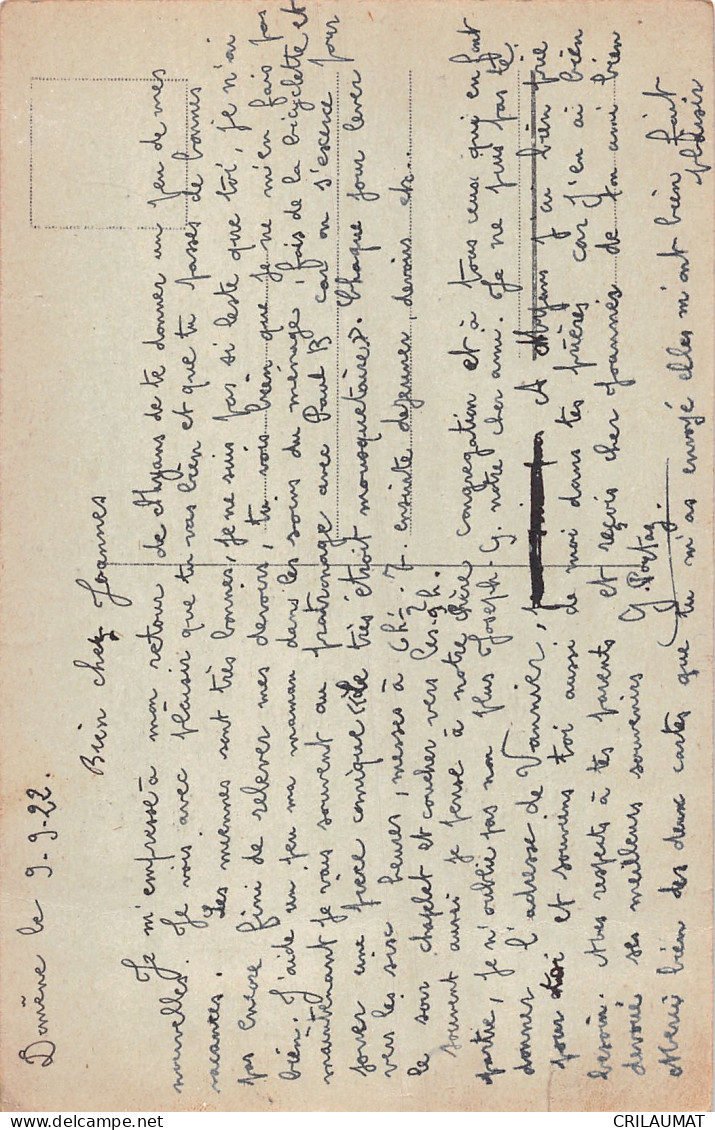 Domène le 9-9-22.
Bien cher Joannes
Je m'empresse à mon retour de Myans de te donner un peu de mes
nouvelles. Je vois avec plaisir que tu vas bien et que tu passes de bonnes
vacances. Les miennes sont très bonnes, je ne suis pas si leste que toi, je n'ai
pas encore fini de relever mes devoirs, tu vois bien que je ne m'en fais pas
bien. J'aide un peu ma maman dans les soins du ménage, fais de la bicyclette et
maintenant je vais souvent au patronage avec Paul B car on s'exerce pour
jouer une pièce comique "Le très étroit mousquetaire". Chaque jour lever
vers les six heures, messes à 6h ½. 7 ensuite déjeuner, devoirs etc...
le soir chaplet et coucher vers les 9h.
souvent aussi je pense à notre chère congrégation et à tous ceux qui en font
partie, je n'oublie pas non plus Joseph. G. notre cher ami. Je ne puis pas te
donner l'adresse de Vannier, A Myans j'ai bien prié
pour toi et souviens toi aussi de moi dans tes prières car j'en ai bien
besoin. Mes respects à tes parents et reçois cher Joannes de ton ami bien
dévoué ses meilleurs souvenirs
G. Portaz.
Merci bien des deux cartes que tu m'as envoyé elles m'ont bien fait
plaisir
CRILAUMAT